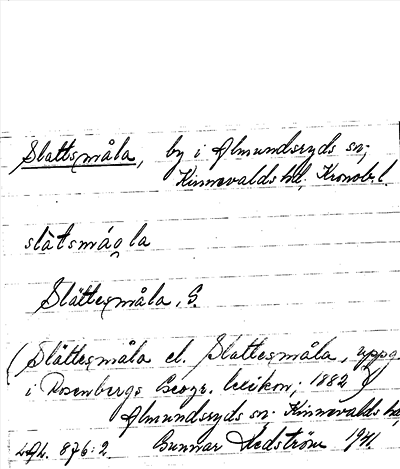 Slattesmåla, by i Almundsryds sn;
Kinnevalds hd, Kronob. l.
slàtsmá̀ola
Slättesmåla, S.
(Slättesmåla el. Slattesmåla, uppg.
i Rosenbergs Geogr. lexikon, 1882)
Almundsryds sn. Kinnevalds hd,
876:2. Gunnar Hedström 1941.